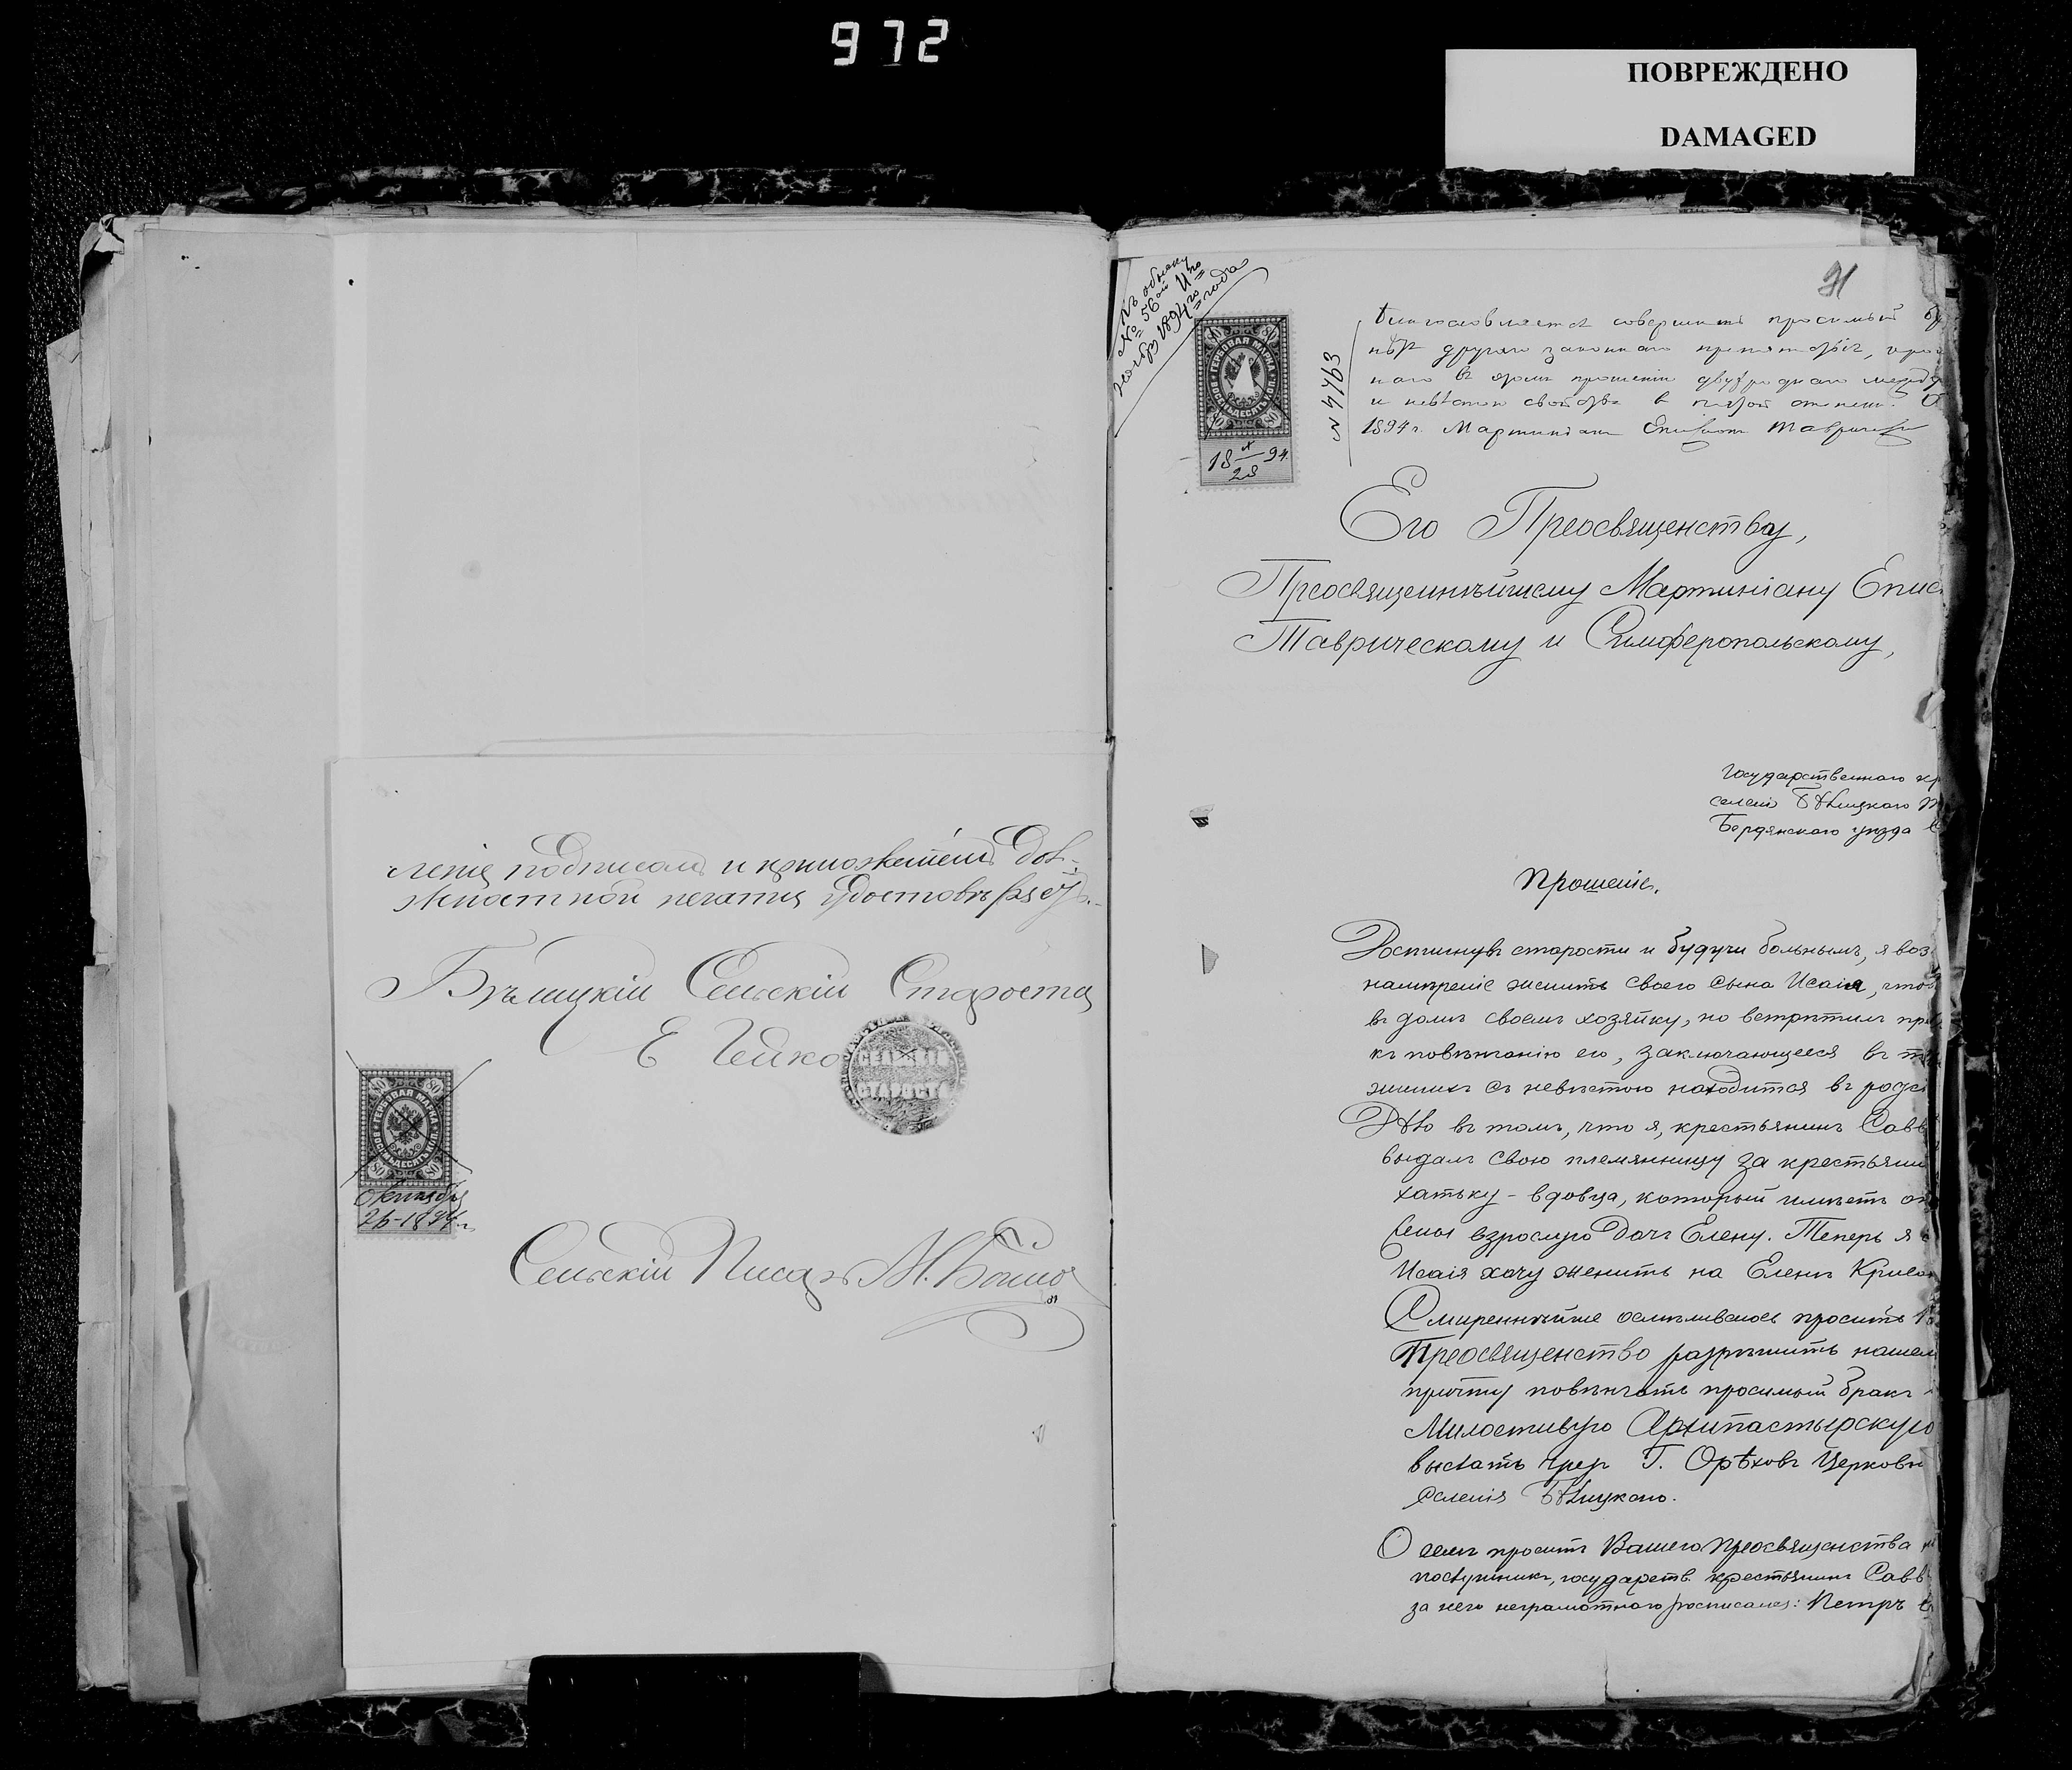 972
ПОВРЕЖДЕНО
DAMAGED
ленiе подписомъ и приложенiемъ дол-
жностной печати удостовѣряетъ.-
Бѣлицкiй Сельскiй Староста
Е Гейко
СЕЛЬСКАГО
СТАРОСТЫ
ГЕРБОВАЯ МАРКА
ВОСЕМЬДЕСЯТЪ КОП.
80 80
80 80
Октября
26-1894 г.
Сельскiй Писарь М.
къ обыску
№ 56ой 11го
ноября 1894го года
91
ГЕРБОВАЯ МАРКА
ВОСЕМЬДЕСЯТЪ КОП.
80 80
80 80
18 X/28 94.
№ 4763
Благословляется совершить просимый бр
нѣтъ другаго законнаго препятствiя, кро
наго въ семъ прошенiи двухроднаго между
и невѣстою свойства в пятой степени. О
1894 г. Мартинiанъ Епископъ Таврическiй
Его Преосвященству,
Преосвященнѣйшему Мартинiану Епис
Таврическому и Симферопольскому,
Государственнаго кр
селенiя Бѣлицкаго
Бердянскаго уѣзда
Прошенiе.
Достигнувъ старости и будучи больнымъ, я воз
намѣренiе женить своего сына Исаiя, чтоб
въ домъ своемъ хозяйку, но встрѣтилъ пре
къ повѣнчанiю его, заключающееся въ т
женихъ съ невѣстою находится въ родс
Дѣло въ томъ, что я, крестьянинъ Савв
выдалъ свою племянницу за крестьяни
хатьку - вдовца, который имѣетъ от
взрослую дочь Елену. Теперь я
Исаiя хочу женить на Еленѣ Криво
Смиреннѣйше осмѣливаюсь просить В
Преосвященство разрѣшить нашем
причту повѣнчать просимый бракъ
Милостивую Архипастырскую
выслать чрез Г. Орѣховъ Церковн
селенiя Бѣлицкаго.
О семъ проситъ Вашего Преосвященства
поступникъ, государств. крестьянинъ Савв
за него неграмотнаго росписался: Петръ